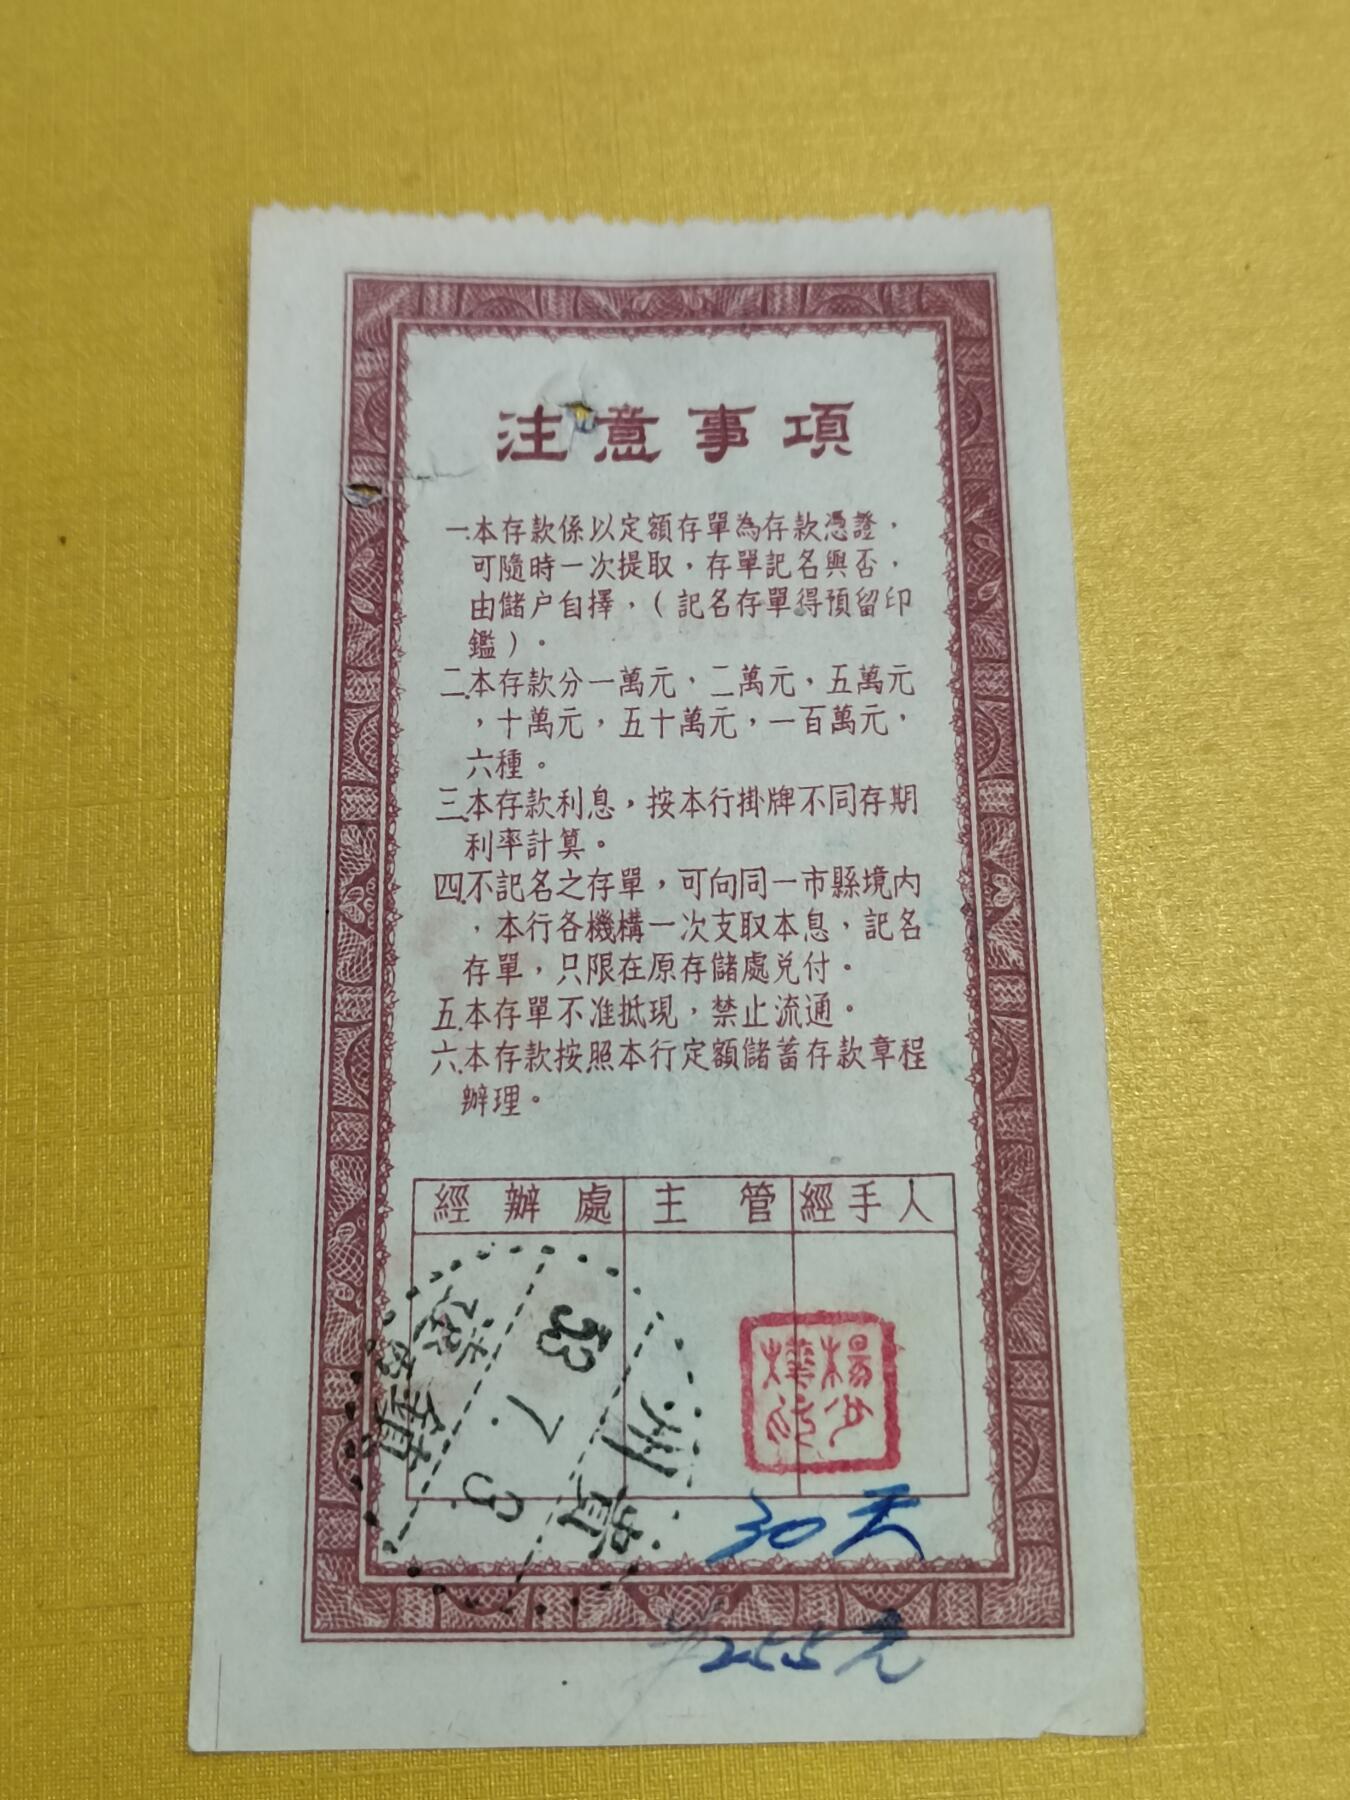 注意事項
一.本存款係以定額存單為存款憑證，
可隨時一次提取，存單記名與否，
由儲户自擇，（記名存單得預留印
鑑）。
二.本存款分一萬元，二萬元，五萬元
，十萬元，五十萬元，一百萬元，
六種。
三.本存款利息，按本行掛牌不同存期
利率計算。
四.不記名之存單，可向同一市縣境内
，本行各機構一次支取本息，記名
存單，只限在原存儲處兑付。
五.本存單不准抵現，禁止流通。
六.本存款按照本行定額儲蓄存款章程
辦理。
經辦處 主管 經手人
貴州
53 7. 3
鎮
楊少
30天
255元